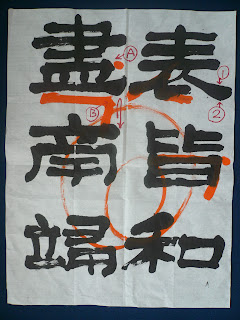 表皆和
盡南歸
Ⓐ
Ⓑ
①
②